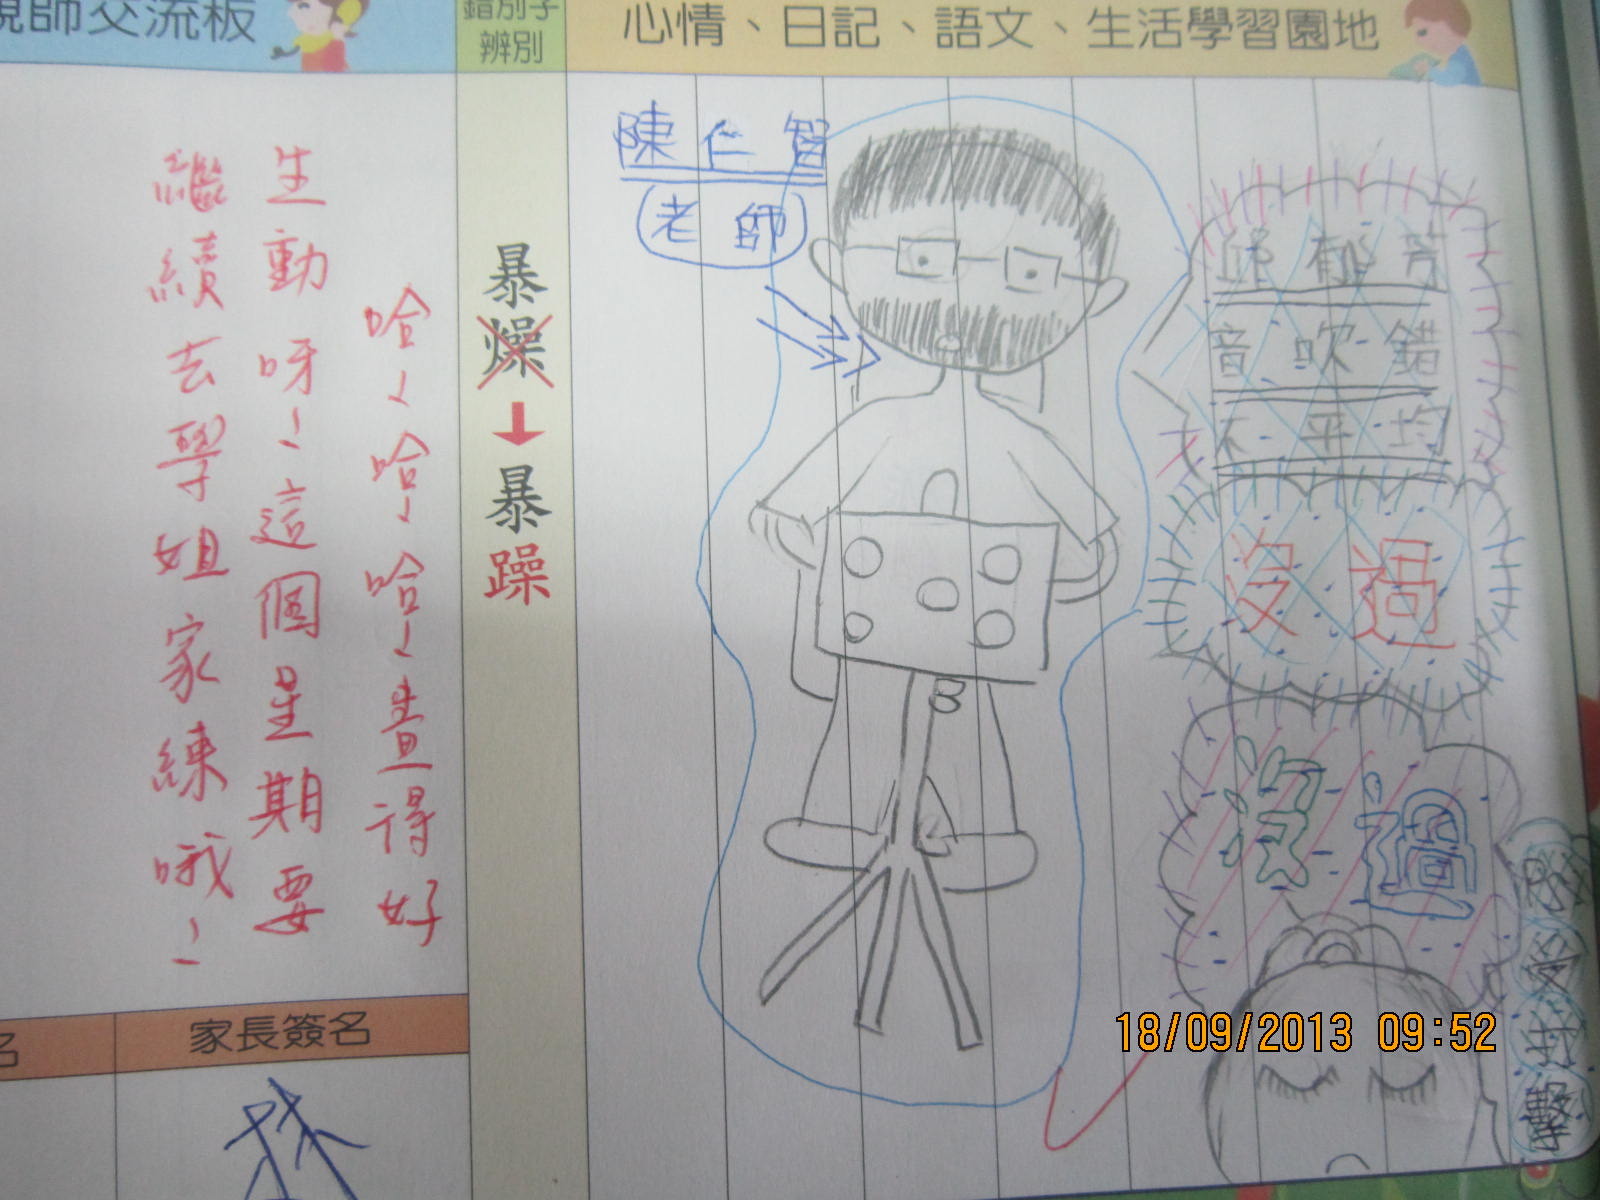 親師交流板
錯別字
辨別
心情、日記、語文、生活學習園地
哈!哈!哈!畫得好
生動呀!這個星期要
繼續去學姐家練哦!
暴燥
暴躁
陳仁智
老師
音吹錯
不平均
沒過
沒過
受打擊
名
家長簽名
林
18/09/2013 09:52